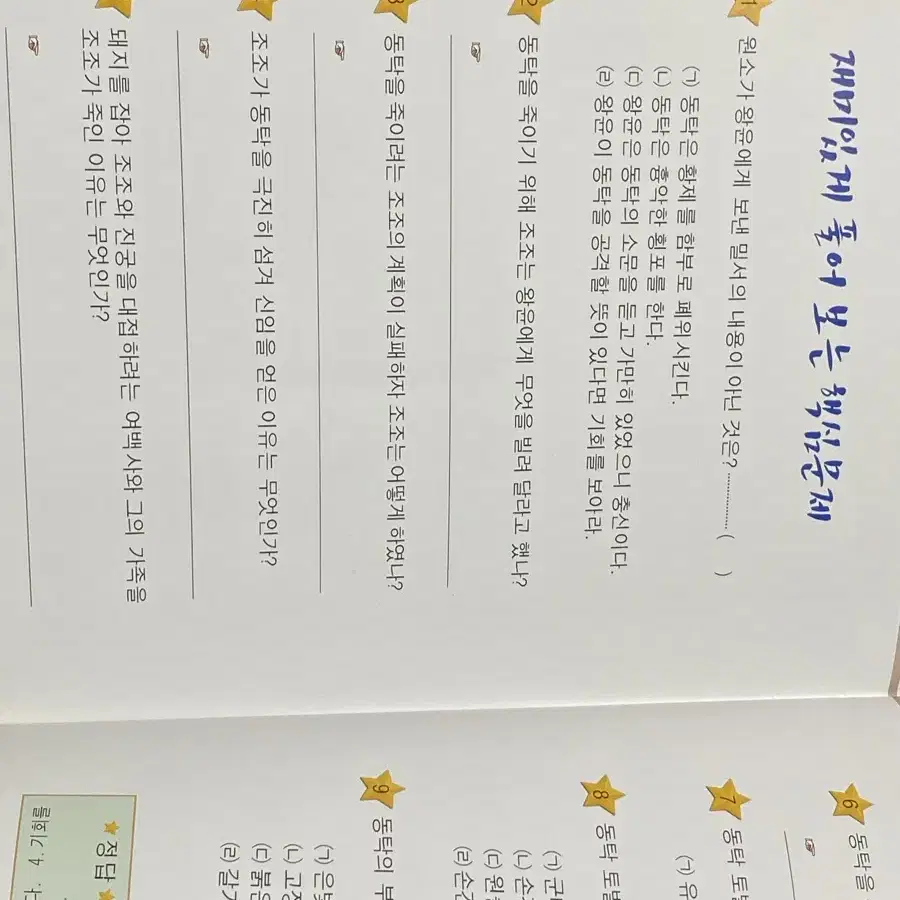 재미있게 풀어 보는 핵심문제
1 원소가 왕윤에게 보낸 밀서의 내용이 아닌 것은? ············ ( )
(ㄱ) 동탁은 황제를 함부로 폐위시킨다.
(ㄴ) 동탁은 흉악한 횡포를 한다.
(ㄷ) 왕윤은 동탁의 소문을 듣고 가만히 있었으니 충신이다.
(ㄹ) 왕윤이 동탁을 공격할 뜻이 있다면 기회를 보아라.
2 동탁을 죽이기 위해 조조는 왕윤에게 무엇을 빌려 달라고 했나?
☞
3 동탁을 죽이려는 조조의 계획이 실패하자 조조는 어떻게 하였나?
☞
조조가 동탁을 극진히 섬겨 신임을 얻은 이유는 무엇인가?
☞
돼지를 잡아 조조와 진궁을 대접하려는 여백사와 그의 가족을
조조가 죽인 이유는 무엇인가?
☞
6 동탁을
☞
7 동탁 토벌
(ㄱ) 유
8 동탁 토벌
(ㄱ)
(ㄴ) 손
(ㄷ) 원
(ㄹ) 손
9 동탁의 부
(ㄱ) 은
(ㄴ) 고
(ㄷ) 붉은
(ㄹ) 갈
정답
4. 기회를
다.